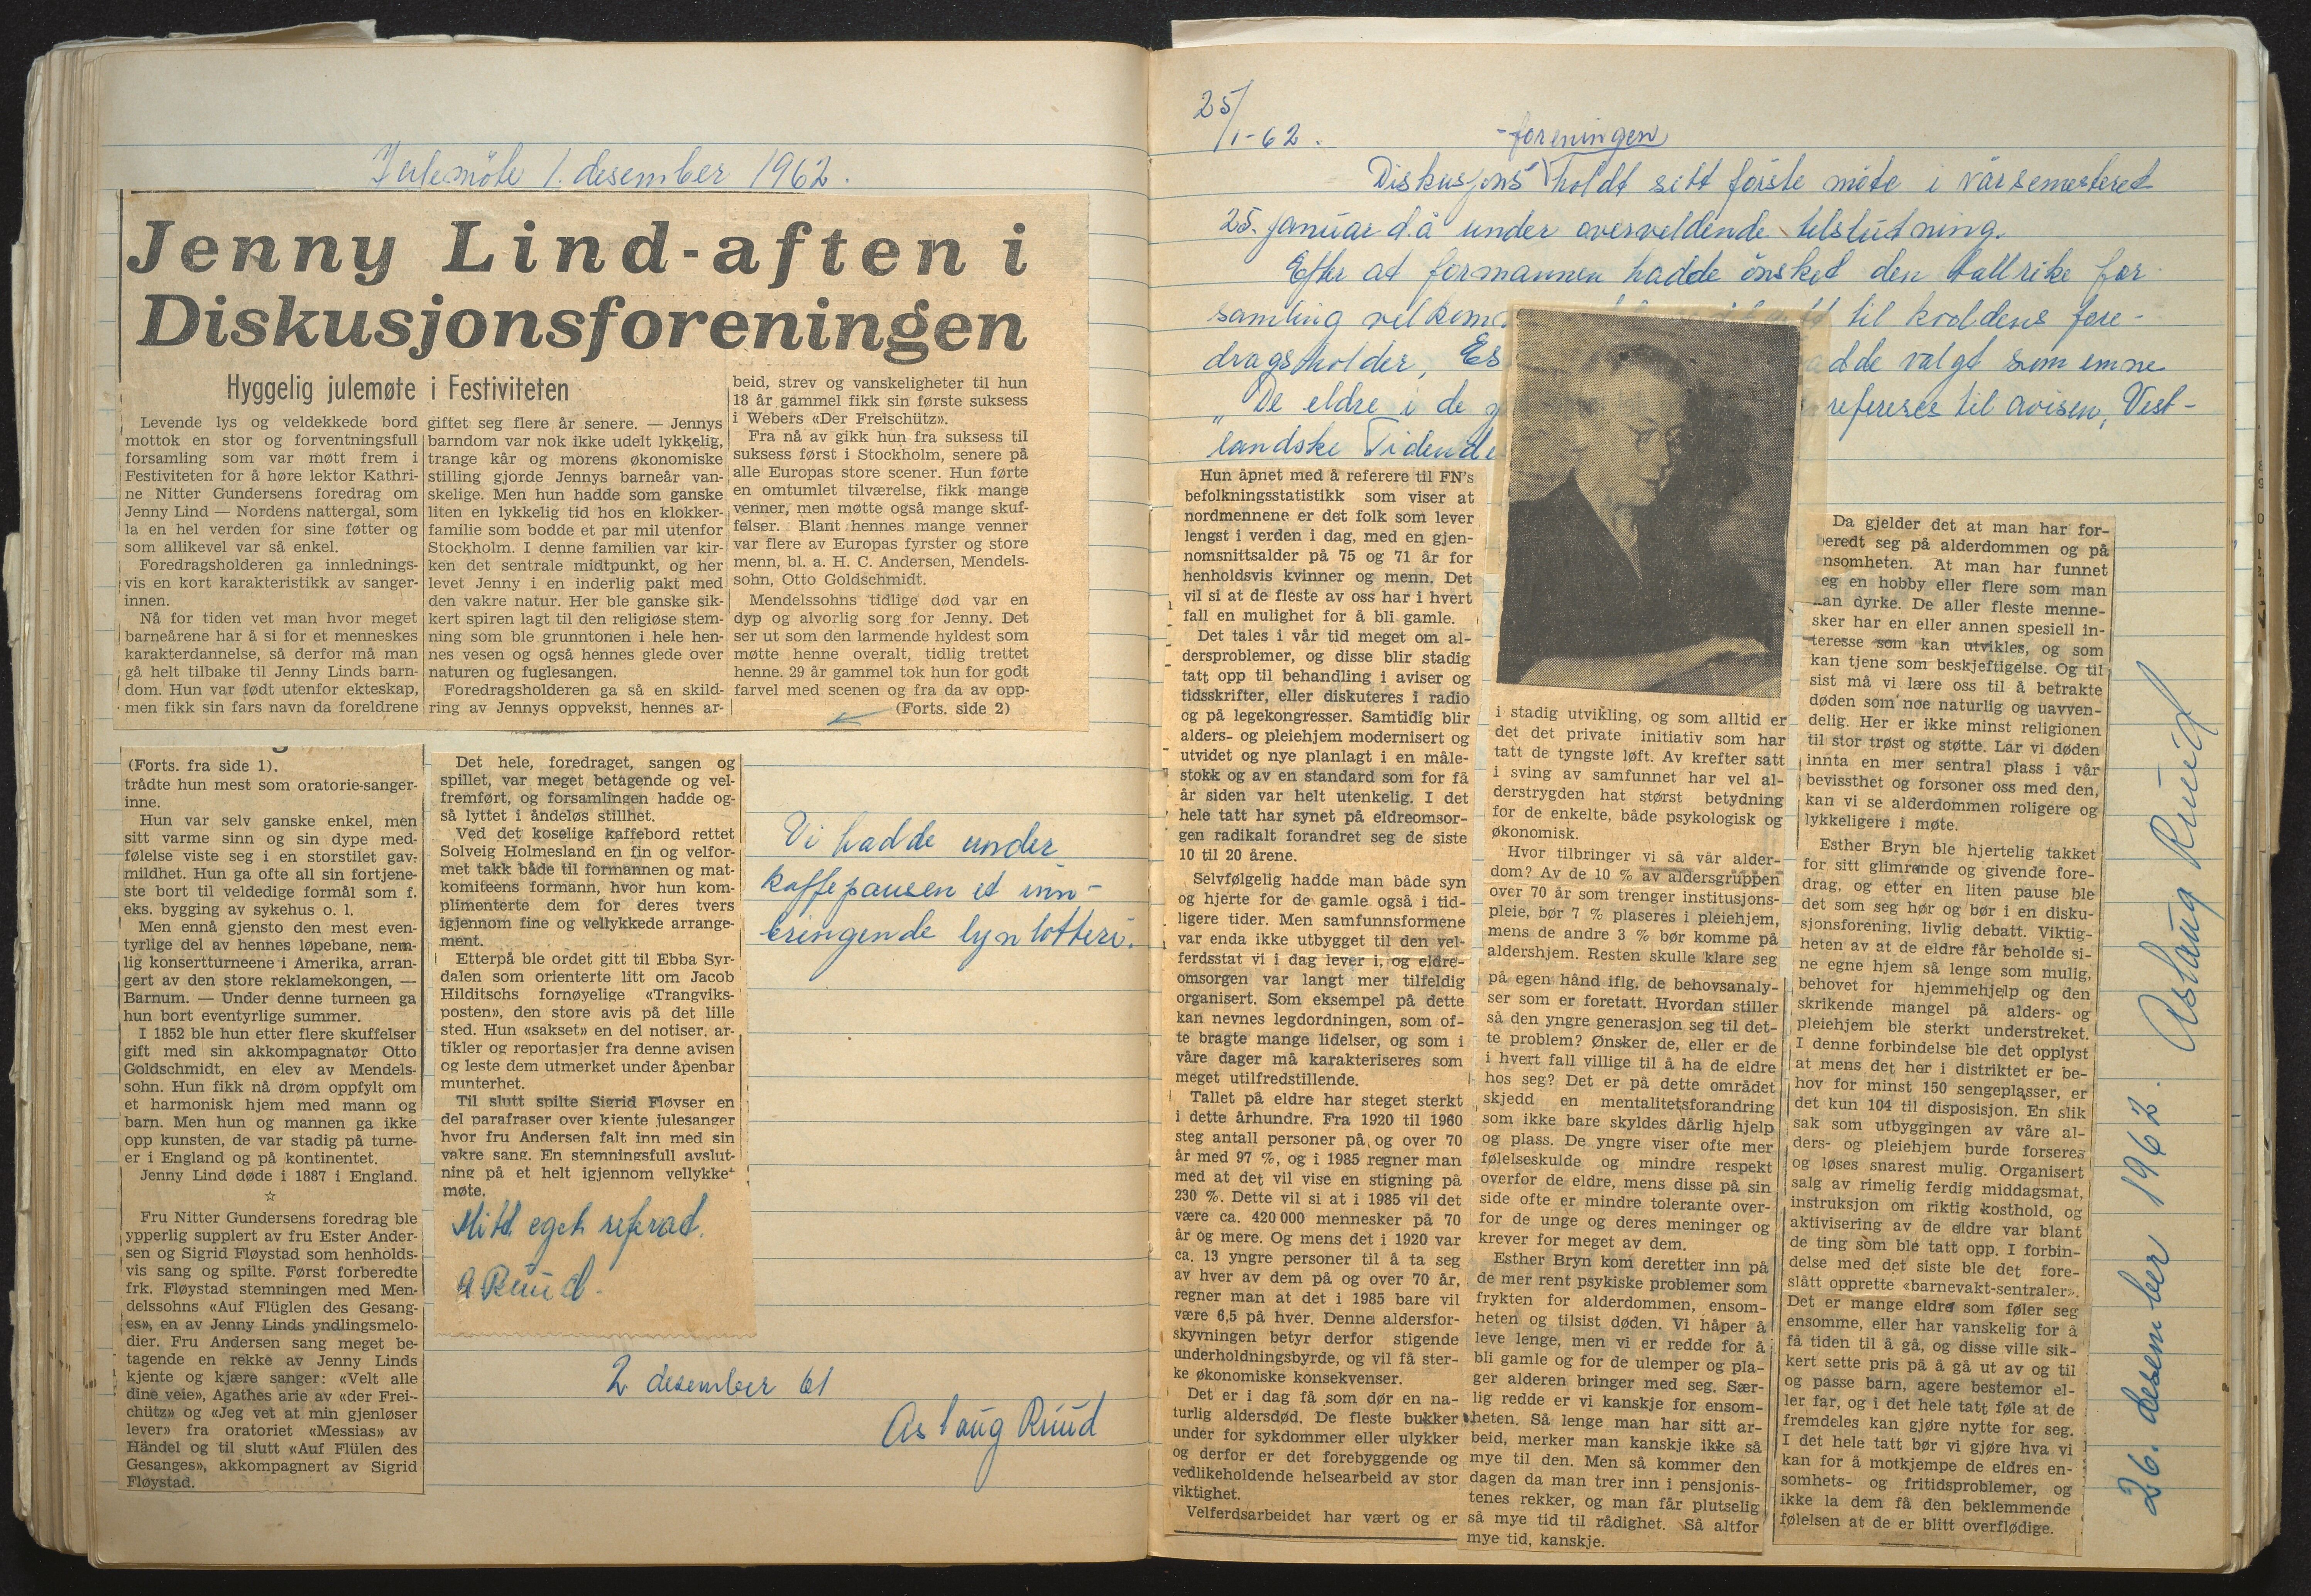 Julemöte 1. desember 1962.
Jenny Lind-aften i
Diskusjonsforeningen
Hyggelig julemøte i Festiviteten
Levende lys og veldekkede bord
mottok en stor og forventningsfull
forsamling som var møtt frem i
Festiviteten for å høre lektor Kathri-
ne Nitter Gundersens foredrag om
Jenny Lind — Nordens nattergal, som
la en hel verden for sine føtter og
som allikevel var så enkel.
Foredragsholderen ga innlednings-
vis en kort karakteristikk av sanger-
innen.
Nå for tiden vet man hvor meget
barneårene har å si for et menneskes
karakterdannelse, så derfor må man
gå helt tilbake til Jenny Linds barn-
dom. Hun var født utenfor ekteskap,
men fikk sin fars navn da foreldrene
giftet seg flere år senere. — Jennys
barndom var nok ikke udelt lykkelig,
trange kår og morens økonomiske
stilling gjorde Jennys barneår van-
skelige. Men hun hadde som ganske
liten en lykkelig tid hos en klokker-
familie som bodde et par mil utenfor
Stockholm. I denne familien var kir-
ken det sentrale midtpunkt, og her
levet Jenny i en inderlig pakt med
den vakre natur. Her ble ganske sik-
kert spiren lagt til den religiøse stem-
ning som ble grunntonen i hele hen-
nes vesen og også hennes glede over
naturen og fuglesangen.
Foredragsholderen ga så en skild-
ring av Jennys oppvekst, hennes ar-
beid, strev og vanskeligheter til hun
18 år gammel fikk sin første suksess
i Webers «Der Freischütz».
Fra nå av gikk hun fra suksess til
suksess først i Stockholm, senere på
alle Europas store scener. Hun førte
en omtumlet tilværelse, fikk mange
venner, men møtte også mange skuf-
felser. Blant hennes mange venner
var flere av Europas fyrster og store
menn, bl. a. H. C. Andersen, Mendels-
sohn, Otto Goldschmidt.
Mendelssohns tidlige død var en
dyp og alvorlig sorg for Jenny. Det
ser ut som den larmende hyldest som
møtte henne overalt, tidlig trettet
henne. 29 år gammel tok hun for godt
farvel med scenen og fra da av opp-
(Forts. side 2)
(Forts. fra side 1).
trådte hun mest som oratorie-sanger-
inne.
Hun var selv ganske enkel, men
sitt varme sinn og sin dype med-
følelse viste seg i en storstilet gav-
mildhet. Hun ga ofte all sin fortjene-
ste bort til veldedige formål som f.
eks. bygging av sykehus o. l.
Men ennå gjensto den mest even-
tyrlige del av hennes løpebane, nem-
lig konsertturneene i Amerika, arran-
gert av den store reklamekongen, —
Barnum. — Under denne turneen ga
hun bort eventyrlige summer.
I 1852 ble hun etter flere skuffelser
gift med sin akkompagnatør Otto
Goldschmidt, en elev av Mendels-
sohn. Hun fikk nå drøm oppfylt om
et harmonisk hjem med mann og
barn. Men hun og mannen ga ikke
opp kunsten, de var stadig på turne-
er i England og på kontinentet.
Jenny Lind døde i 1887 i England.
☆
Fru Nitter Gundersens foredrag ble
ypperlig supplert av fru Ester Ander-
sen og Sigrid Fløystad som henholds-
vis sang og spilte. Først forberedte
frk. Fløystad stemningen med Men-
delssohns «Auf Flüglen des Gesang-
es», en av Jenny Linds yndlingsmelo-
dier. Fru Andersen sang meget be-
tagende en rekke av Jenny Linds
kjente og kjære sanger: «Velt alle
dine veie», Agathes arie av «der Frei-
chütz» og «Jeg vet at min gjenløser
lever» fra oratoriet «Messias» av
Händel og til slutt «Auf Flülen des
Gesanges», akkompagnert av Sigrid
Fløystad.
Det hele, foredraget, sangen og
spillet, var meget betagende og vel-
fremført, og forsamlingen hadde og-
så lyttet i åndeløs stillhet.
Ved det koselige kaffebord rettet
Solveig Holmesland en fin og velfor-
met takk både til formannen og mat-
komiteens formann, hvor hun kom-
plimenterte dem for deres tvers
igjennom fine og vellykkede arrange-
ment.
Etterpå ble ordet gitt til Ebba Syr-
dalen som orienterte litt om Jacob
Hilditschs fornøyelige «Trangviks-
posten», den store avis på det lille
sted. Hun «sakset» en del notiser, ar-
tikler og reportasjer fra denne avisen
og leste dem utmerket under åpenbar
munterhet.
Til slutt spilte Sigrid Fløyser en
del parafraser over kjente julesanger
hvor fru Andersen falt inn med sin
vakre sang. En stemningsfull avslut-
ning på et helt igjennom vellykket
møte.
Mitt eget referat.
A Ruud.
Vi hadde under
kaffepausen et inn-
bringende lynlotteri.
2 desember 61
Aslaug Ruud
25/1-62.
-foreningen
Diskusjons holdt sitt förste möte i vårsemesteret
25. januar d.å under overveldende tilslutning.
Efter at formannen hadde önsket den tallrike for
samling velkom til kveldens fore-
dragsholder, Es adde valgt som emne
"De eldre i de refereres til avisen, Vest-
landske Tidende
Hun åpnet med å referere til FN's
befolkningsstatistikk som viser at
nordmennene er det folk som lever
lengst i verden i dag, med en gjen-
nomsnittsalder på 75 og 71 år for
henholdsvis kvinner og menn. Det
vil si at de fleste av oss har i hvert
fall en mulighet for å bli gamle.
Det tales i vår tid meget om al-
dersproblemer, og disse blir stadig
tatt opp til behandling i aviser og
tidsskrifter, eller diskuteres i radio
og på legekongresser. Samtidig blir
alders- og pleiehjem modernisert og
utvidet og nye planlagt i en måle-
stokk og av en standard som for få
år siden var helt utenkelig. I det
hele tatt har synet på eldreomsor-
gen radikalt forandret seg de siste
10 til 20 årene.
Selvfølgelig hadde man både syn
og hjerte for de gamle også i tid-
ligere tider. Men samfunnsformene
var enda ikke utbygget til den vel-
ferdsstat vi i dag lever i, og eldre-
omsorgen var langt mer tilfeldig
organisert. Som eksempel på dette
kan nevnes legdordningen, som of-
te bragte mange lidelser, og som i
våre dager må karakteriseres som
meget utilfredstillende.
Tallet på eldre har steget sterkt
i dette århundre. Fra 1920 til 1960
steg antall personer på og over 70
år med 97 %, og i 1985 regner man
med at det vil vise en stigning på
230 %. Dette vil si at i 1985 vil det
være ca. 420 000 mennesker på 70
år og mere. Og mens det i 1920 var
ca. 13 yngre personer til å ta seg
av hver av dem på og over 70 år,
regner man at det i 1985 bare vil
være 6,5 på hver. Denne aldersfor-
skyvningen betyr derfor stigende
underholdningsbyrde, og vil få ster-
ke økonomiske konsekvenser.
Det er i dag få som dør en na-
turlig aldersdød. De fleste bukker
under for sykdommer eller ulykker
og derfor er det forebyggende og
vedlikeholdende helsearbeid av stor
viktighet.
Velferdsarbeidet har vært og er
i stadig utvikling, og som alltid er
det det private initiativ som har
tatt de tyngste løft. Av krefter satt
i sving av samfunnet har vel al-
derstrygden hat størst betydning
for de enkelte, både psykologisk og
økonomisk.
Hvor tilbringer vi så vår alder-
dom? Av de 10 % av aldersgruppen
over 70 år som trenger institusjons-
pleie, bør 7 % plaseres i pleiehjem,
mens de andre 3 % bør komme på
aldershjem. Resten skulle klare seg
på egen hånd iflg. de behovsanaly-
ser som er foretatt. Hvordan stiller
så den yngre generasjon seg til det-
te problem? Ønsker de, eller er de
i hvert fall villige til å ha de eldre
hos seg? Det er på dette området
skjedd en mentalitetsforandring
som ikke bare skyldes dårlig hjelp
og plass. De yngre viser ofte mer
følelseskulde og mindre respekt
overfor de eldre, mens disse på sin
side ofte er mindre tolerante over-
for de unge og deres meninger og
krever for meget av dem.
Esther Bryn kom deretter inn på
de mer rent psykiske problemer som
frykten for alderdommen, ensom-
heten og tilsist døden. Vi håper å
leve lenge, men vi er redde for å
bli gamle og for de ulemper og pla-
ger alderen bringer med seg. Sær-
lig redde er vi kanskje for ensom-
heten. Så lenge man har sitt ar-
beid, merker man kanskje ikke så
mye til den. Men så kommer den
dagen da man trer inn i pensjonis-
tenes rekker, og man får plutselig
så mye tid til rådighet. Så altfor
mye tid, kanskje.
Da gjelder det at man har for-
beredt seg på alderdommen og på
ensomheten. At man har funnet
seg en hobby eller flere som man
kan dyrke. De aller fleste menne-
sker har en eller annen spesiell in-
teresse som kan utvikles, og som
kan tjene som beskjeftigelse. Og til
sist må vi lære oss til å betrakte
døden som noe naturlig og uavven-
delig. Her er ikke minst religionen
til stor trøst og støtte. Lar vi døden
innta en mer sentral plass i vår
bevissthet og forsoner oss med den,
kan vi se alderdommen roligere og
lykkeligere i møte.
Esther Bryn ble hjertelig takket
for sitt glimrende og givende fore-
drag, og etter en liten pause ble
det som seg hør og bør i en disku-
sjonsforening, livlig debatt. Viktig-
heten av at de eldre får beholde si-
ne egne hjem så lenge som mulig,
behovet for hjemmehjelp og den
skrikende mangel på alders- og
pleiehjem ble sterkt understreket.
I denne forbindelse ble det opplyst
at mens det her i distriktet er be-
hov for minst 150 sengeplasser, er
det kun 104 til disposisjon. En slik
sak som utbyggingen av våre al-
ders- og pleiehjem burde forseres
og løses snarest mulig. Organisert
salg av rimelig ferdig middagsmat,
instruksjon om riktig kosthold, og
aktivisering av de eldre var blant
de ting som ble tatt opp. I forbin-
delse med det siste ble det fore-
slått opprette «barnevakt-sentraler».
Det er mange eldre som føler seg
ensomme, eller har vanskelig for å
få tiden til å gå, og disse ville sik-
kert sette pris på å gå ut av og til
og passe barn, agere bestemor el-
ler far, og i det hele tatt føle at de
fremdeles kan gjøre nytte for seg.
I det hele tatt bør vi gjøre hva vi
kan for å motkjempe de eldres en-
somhets- og fritidsproblemer, og
ikke la dem få den beklemmende
følelsen at de er blitt overflødige.
26. desember 1962. Aslaug Ruud